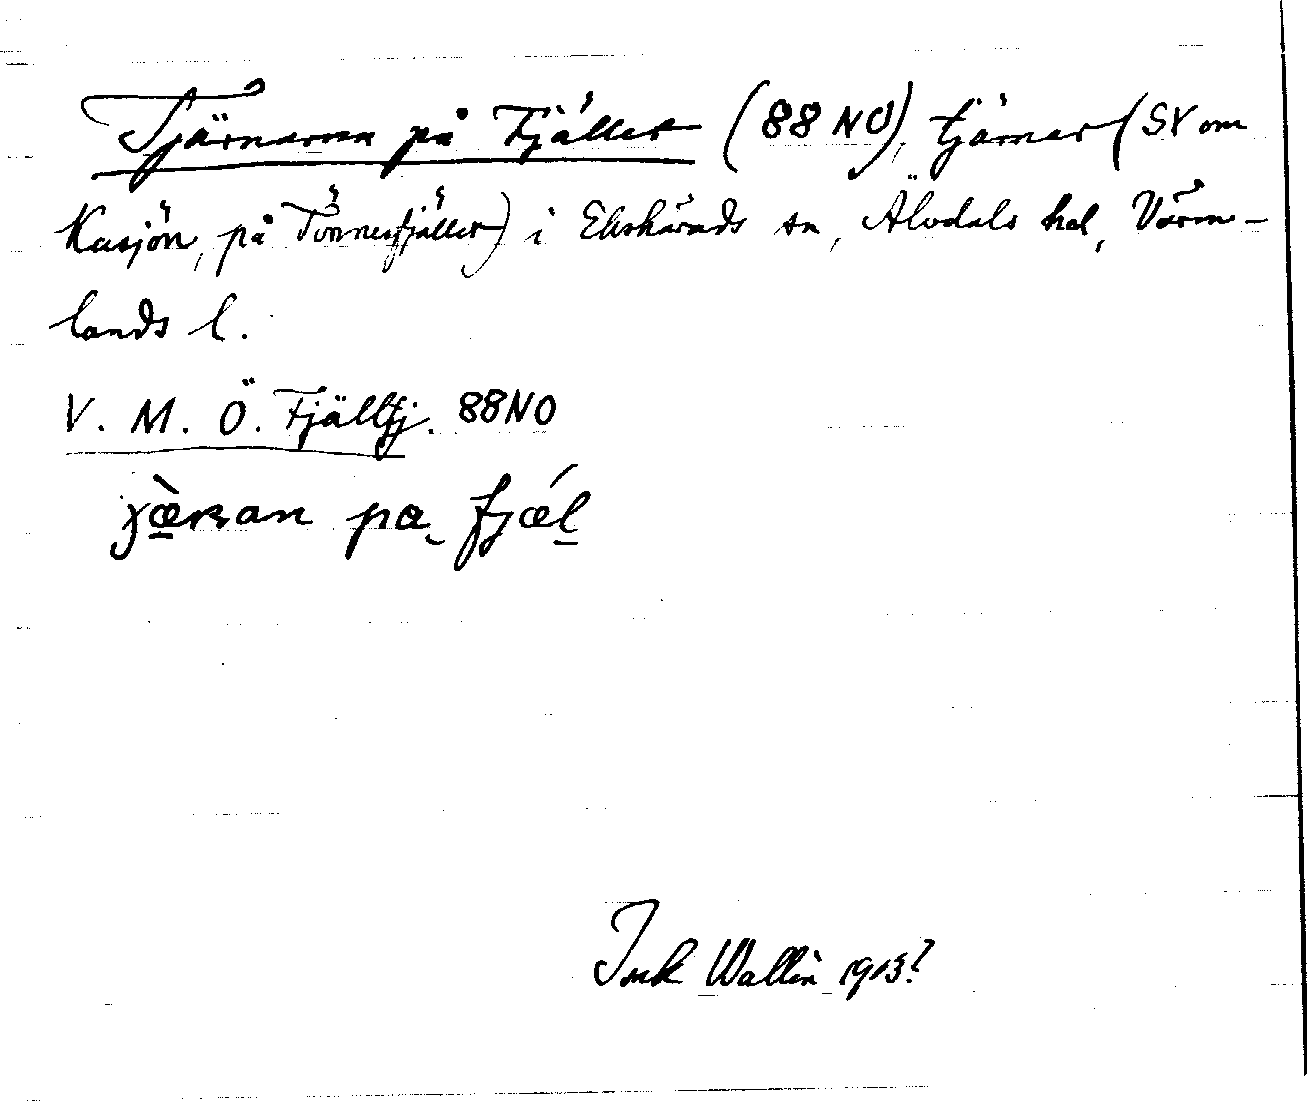 Tjärnarna på Fjället (88 NO), tjärnar (SV om
Kusjön, på Tönnesfjället) i Ekshärads sn, Älvdals hd, Värm-
lands l.
V. M. Ö. Fjällfj. 88NO
pa fjæl
Wallin 1913?